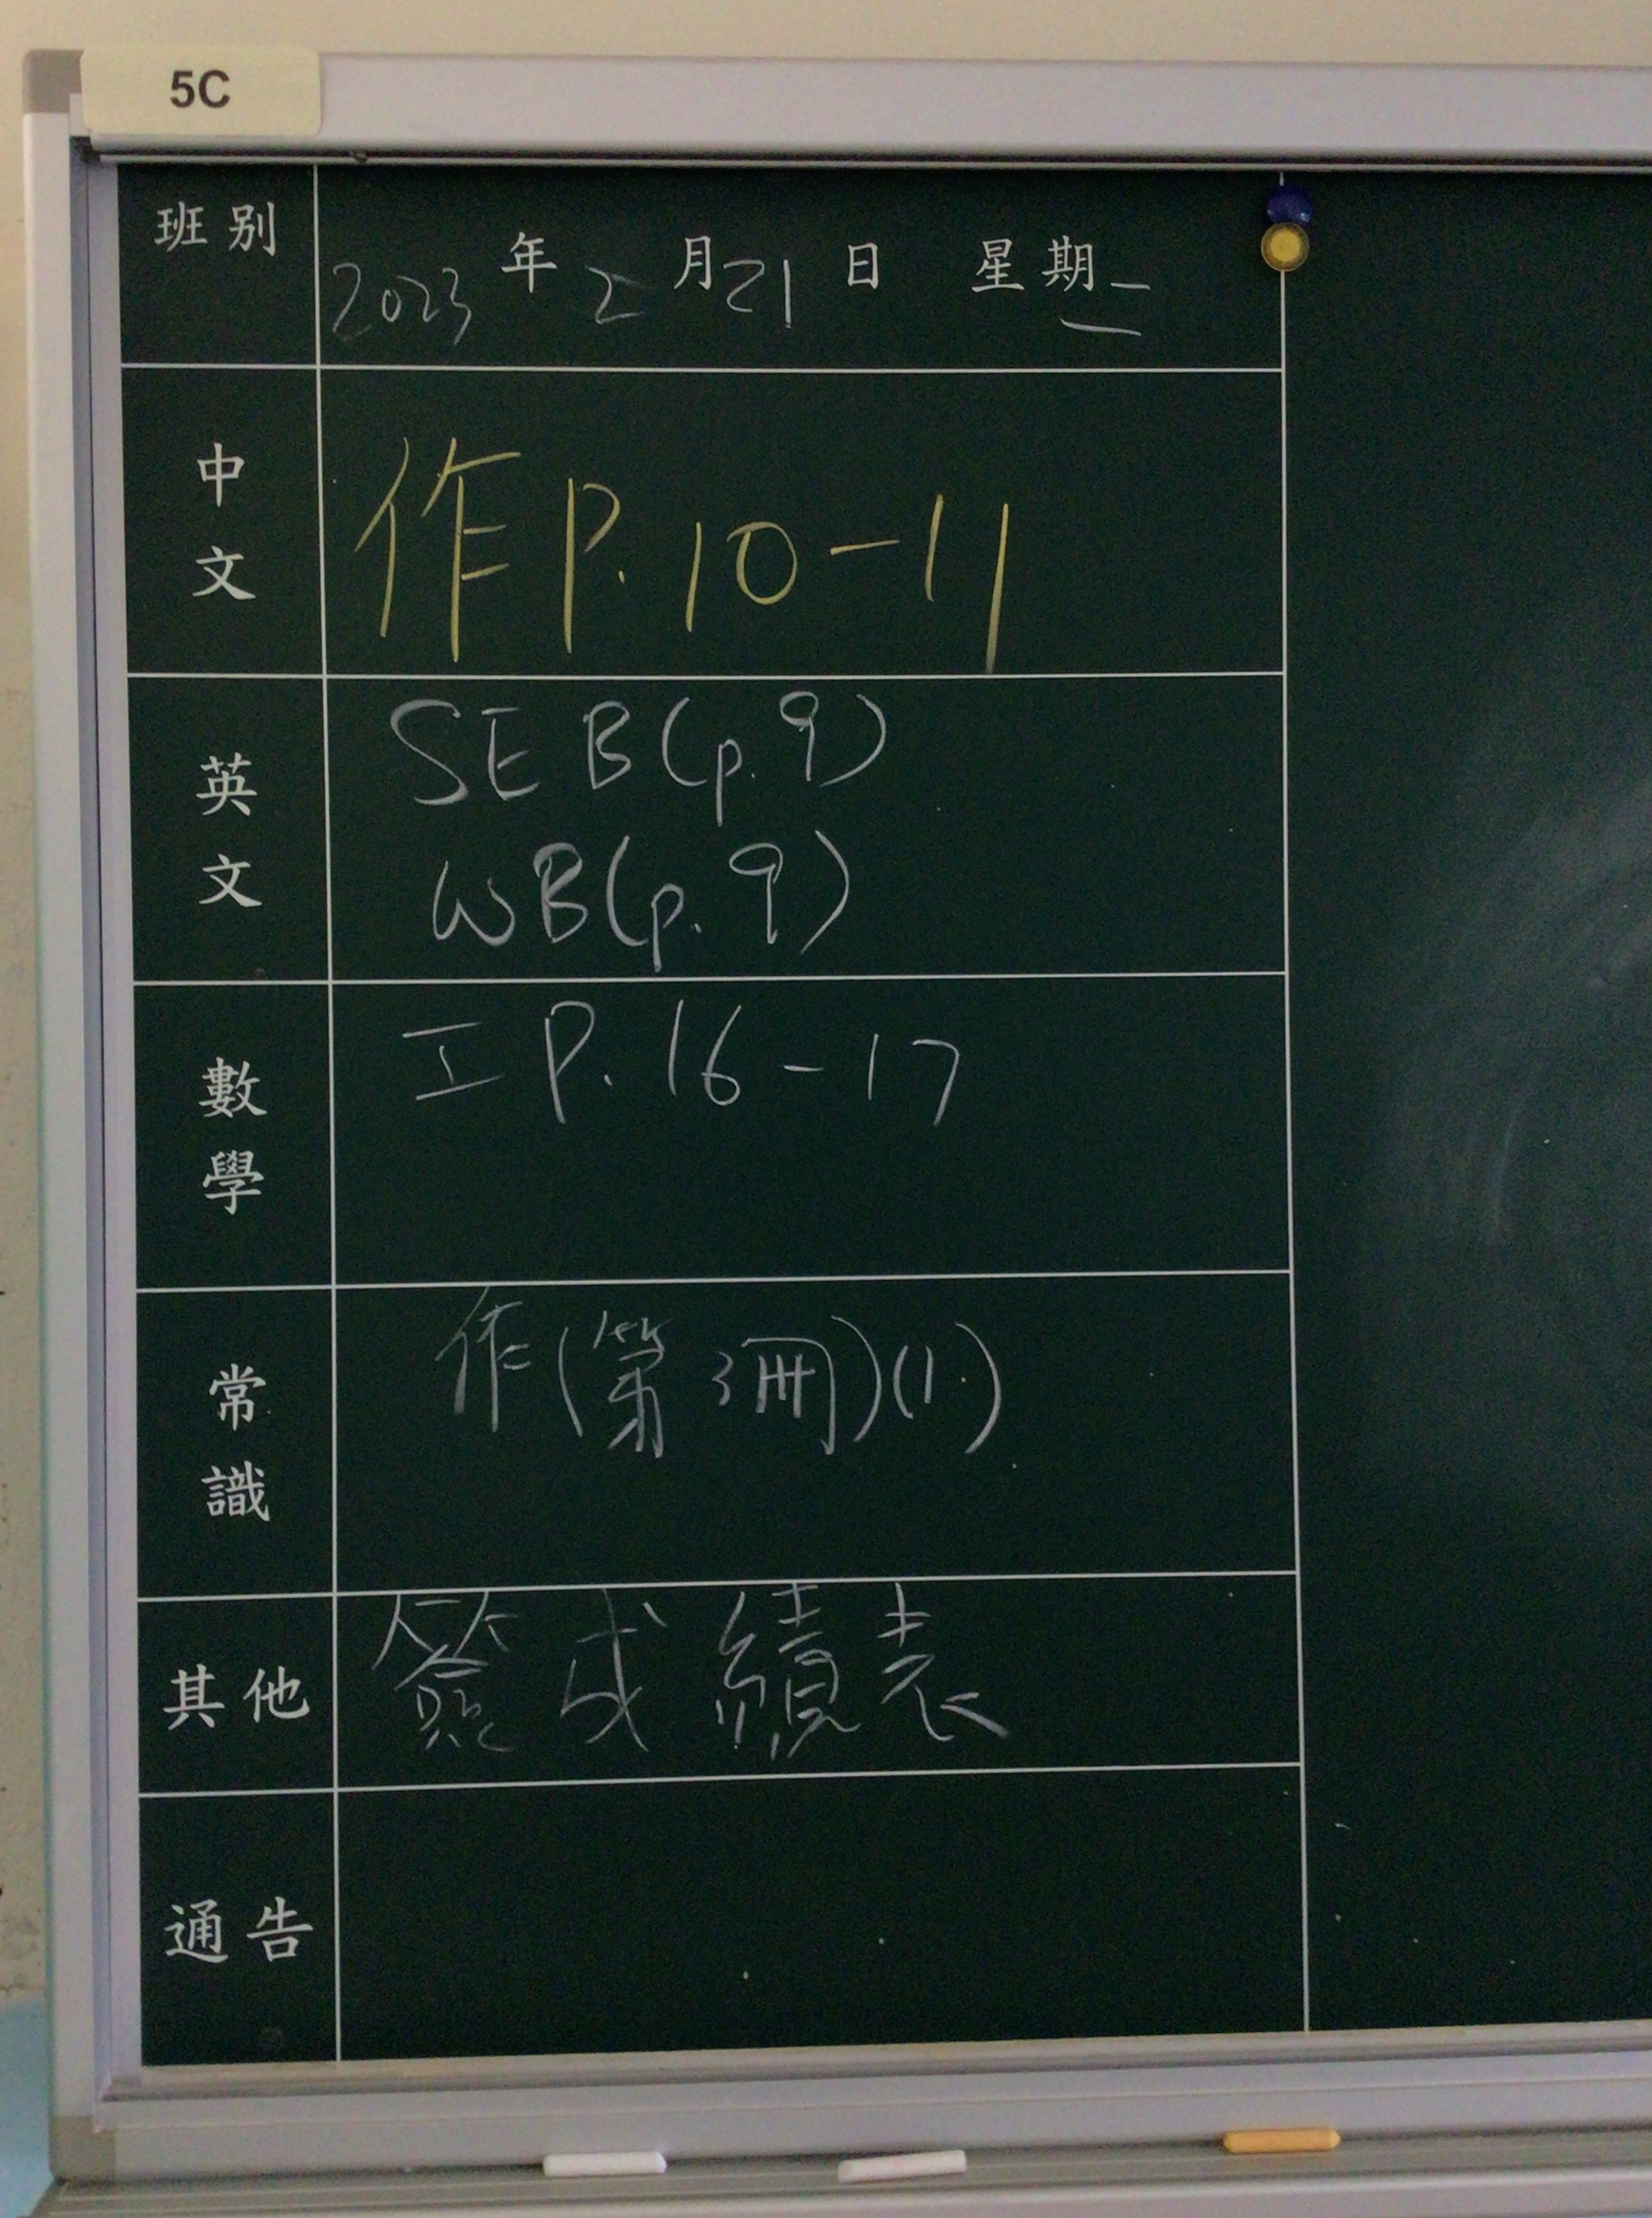 5C
班別
2023年2月21日 星期二
中文
作P.10-11
英文
SEB(p.9)
WB(p.9)
數學
工P.16-17
常識
作(第3冊)(1.)
其他
簽成績表
通告